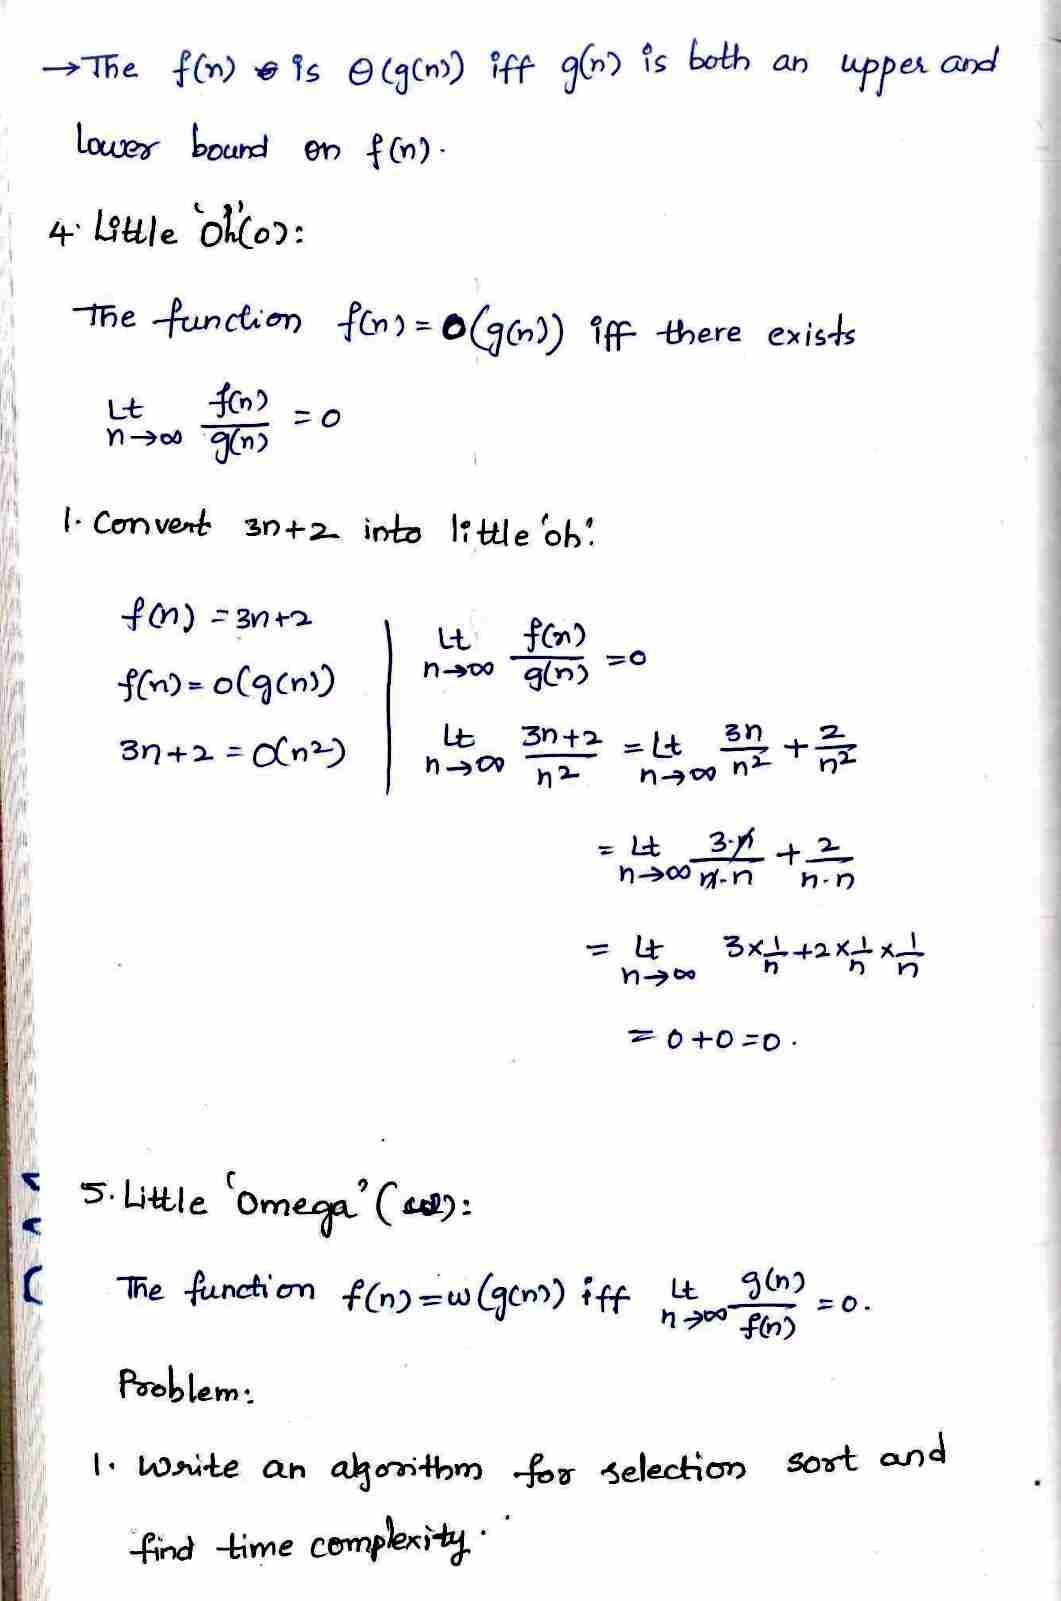 →The f(n) is Θ(g(n)) iff g(n) is both an upper and
lower bound on f(n).
4. Little 'oh'(o):
The function f(n) = o(g(n)) iff there exists
Lt n→∞ f(n)/g(n) = 0
1. Convert 3n+2 into little 'oh'.
f(n) = 3n+2
f(n) = o(g(n))
3n+2 = O(n²)
Lt n→∞ f(n)/g(n) = 0
Lt n→∞ 3n+2/n² = Lt n→∞ 3n/n² + 2/n²
= Lt n→∞ 3.n/n.n + 2/n.n
= Lt n→∞ 3×1/n + 2×1/n×1/n
= 0+0=0.
5. Little 'omega' (ω):
The function f(n) = ω(g(n)) iff Lt n→∞ g(n)/f(n) = 0.
Problem:
1. Write an algorithm for selection sort and
find time complexity.